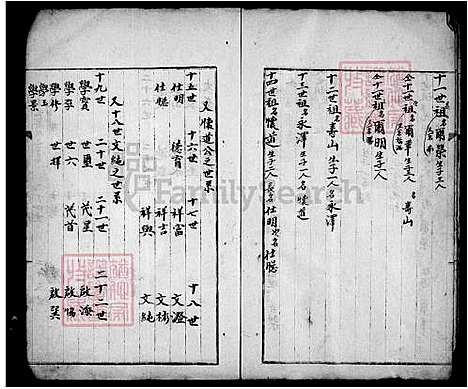 十一世祖名爾榮生子三人
仝十一世祖名爾華生三人 名壽山
仝十一世祖名爾明生子一人
十二世祖名壽山生子一人名永澤
十三世祖名永澤生子一人名懷道
十四世祖名懷道生子二人長名仕明次名仕聰
又懷道公之世系
十五世 十六世 十七世 十八世
仕明 德育 祥富 文澄
仕聰 祥吉 文樹
祥興 文純
又十八世文純之世系
十九世 二十世 二十一世 二十二世
學寶 世璽 茂星 啟源
學孟 世六 茂首 啟偽
學林 世祥 啟巽
學玉
學景
FamilySearch